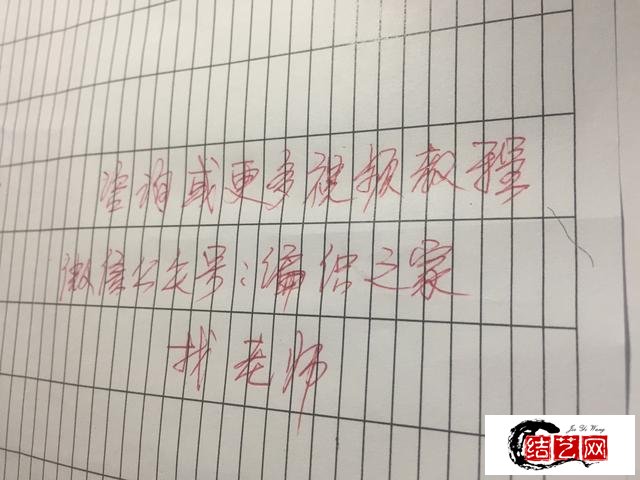 咨询或更多视频教程
微信公众号:编织之家
找老师
Jie Yi Wang
结艺网